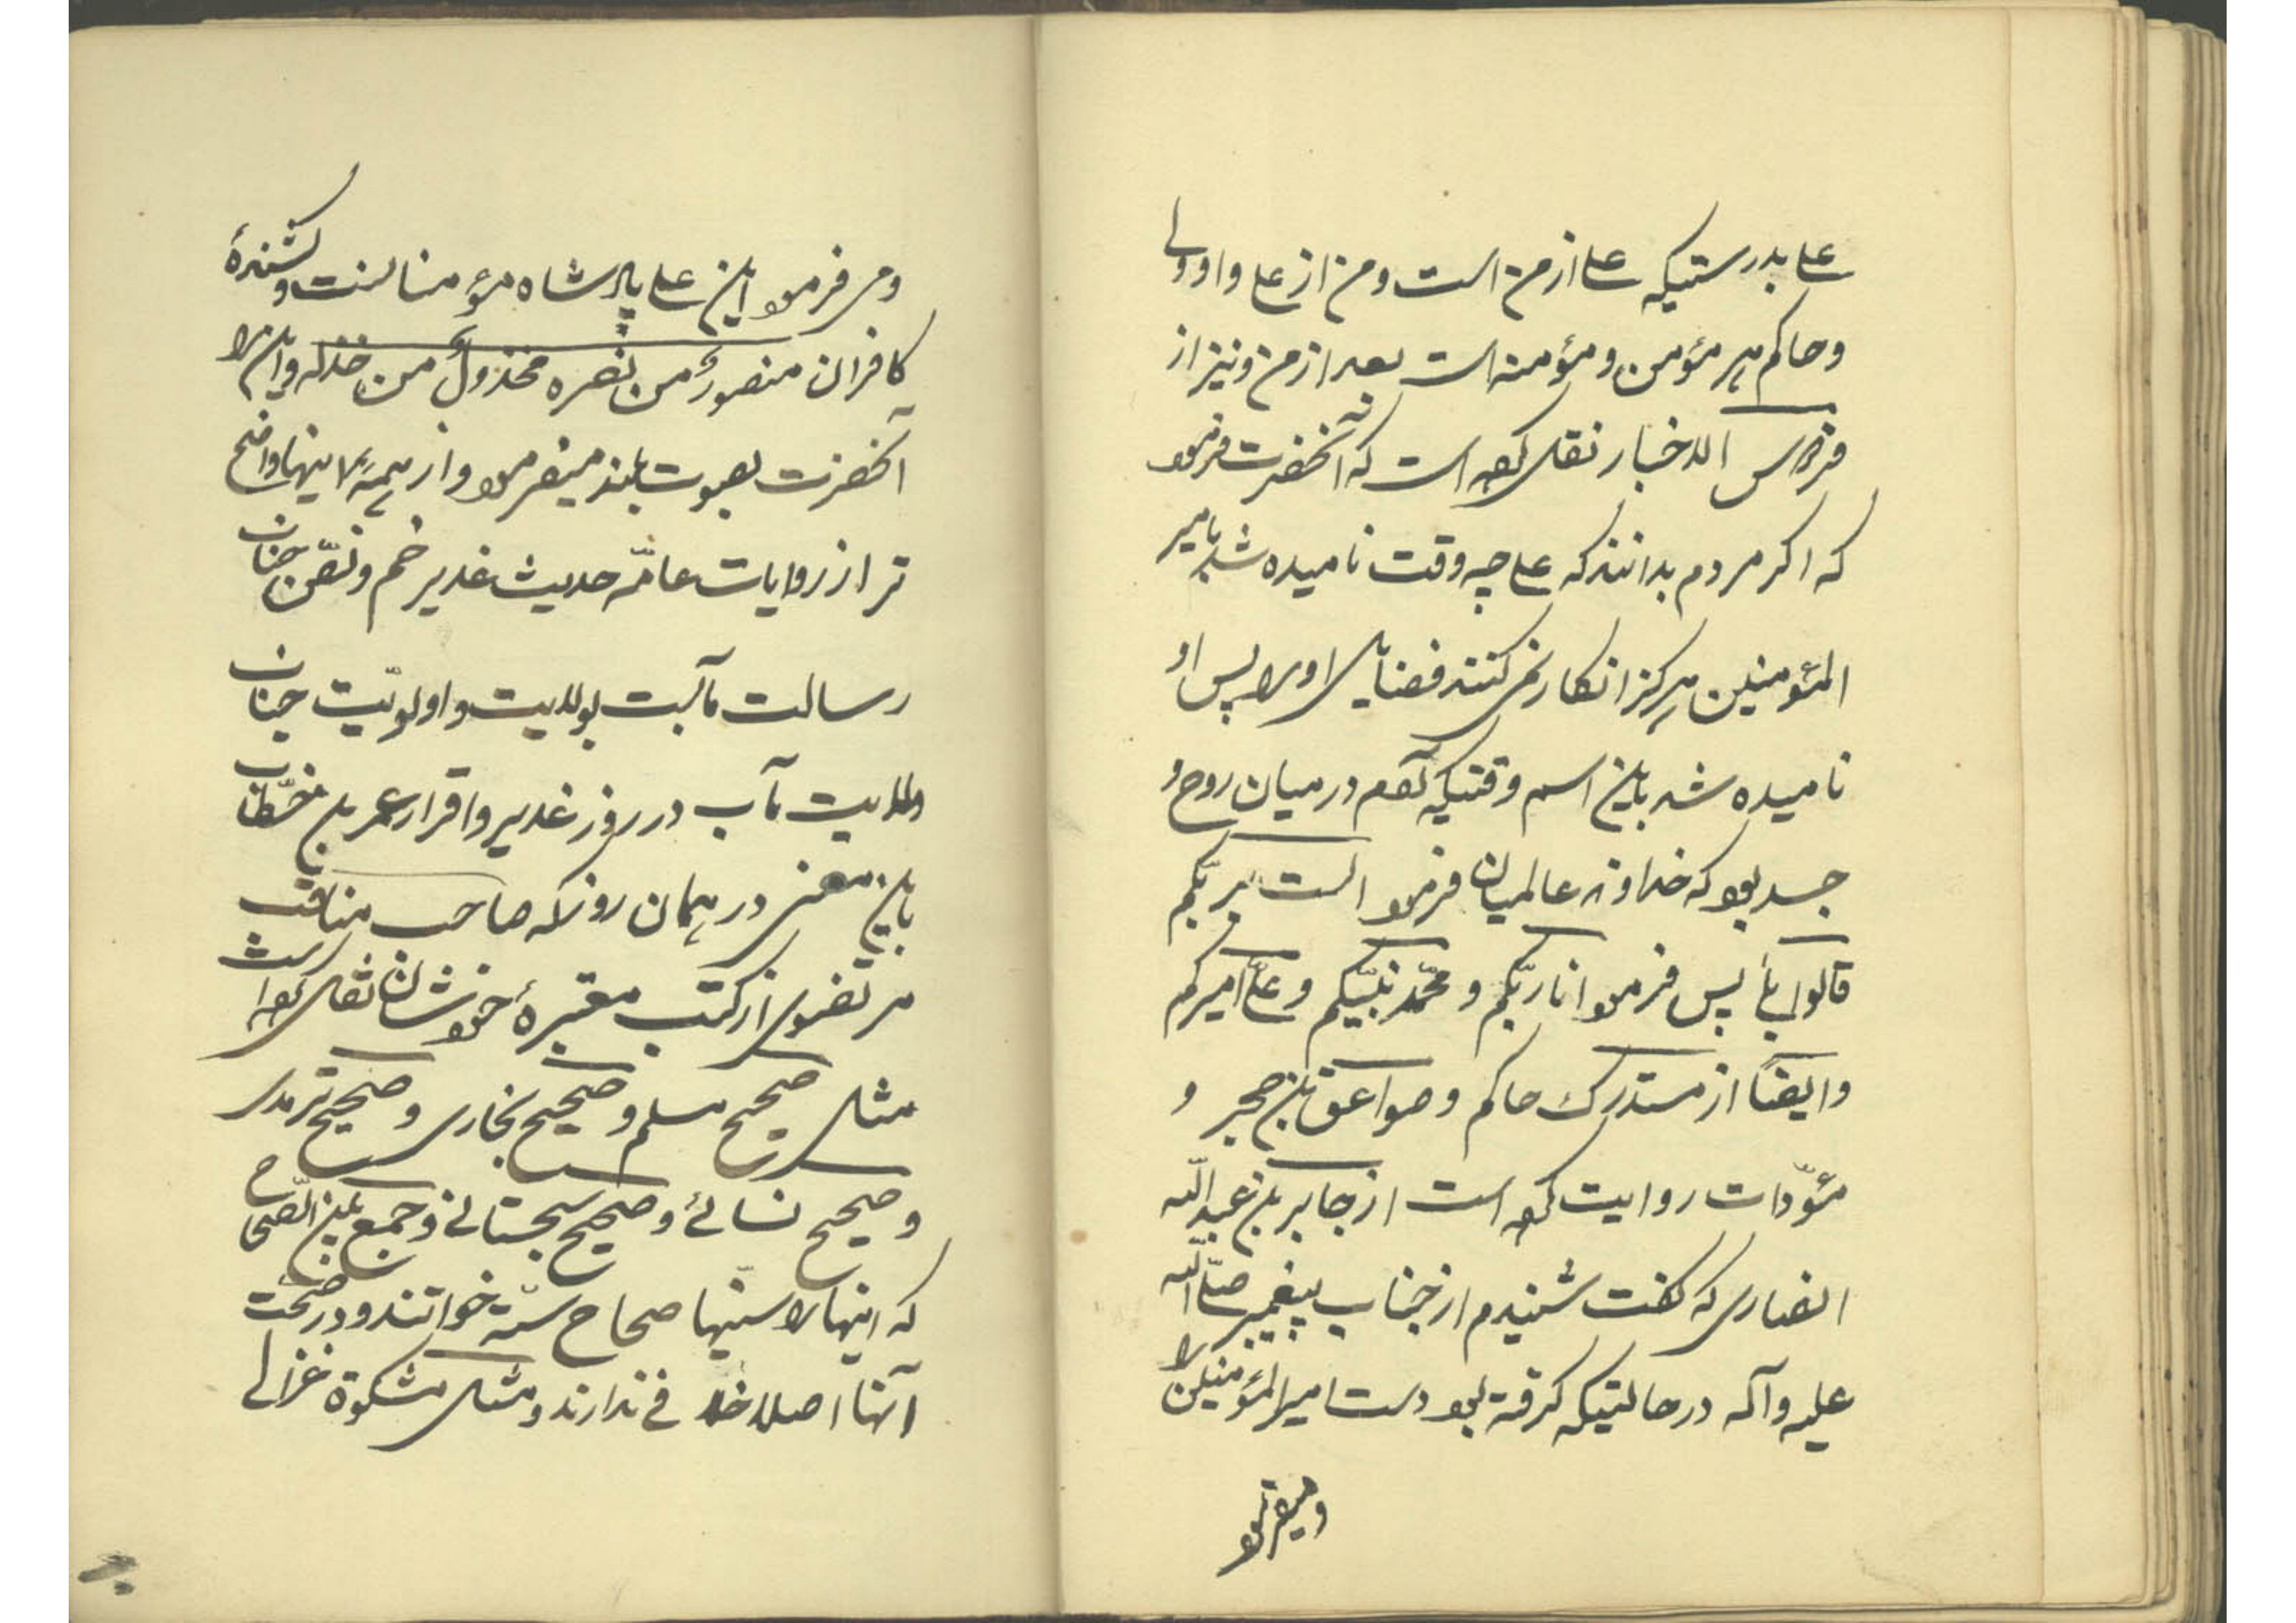 علی بدرستیکه علی از من است و من از علی و او ولی
و حاکم هر مؤمن و مؤمنه است بعد از من و نیز از
فردوس الاخبار نقل کرده است که آنحضرت فرمود
که اکر مردم بدانند که علی چه وقت نامیده شد بامیر
المؤمنین هرکز انکار نمی کنند فضایل او را پس او
نامیده شد باین اسم وقتیکه آدم در میان روح و
جسد بود که خداوند عالمیان فرمود الست بربّکم
قالوا بلی پس فرمود انا ربّکم و محمّد نبیّکم و علیّ امیرکم
و ایضًا از مستدرک حاکم و صواعق ابن حجر و
مؤدّات روایت کرده است از جابر بن عبد اللّه
انصاری که کفت شنیدم از جناب پیغمبر صلّی اللّه
علیه و آله در حالتیکه کرفته بود دست امیر المؤمنین را
و میفرمود
و می فرمود این علی پادشاه مؤمنانست و کشندهٔ
کافران منصورٌ من نصره مخذولٌ من خذله و این را
آنحضرت بصوت بلند میفرمود و از همهٔ اینها واضح
تر از روایات عامّه حدیث غدیر خم و نصّ جناب
رسالت مآبست بولایت و اولویّت جناب
ولایت مآب در روز غدیر و اقرار عمر بن خطّاب
باین معنی در همان روز که صاحب مناقب
مرتضوی از کتب معتبرهٔ خودشان نقل کرده است
مثل صحیح مسلم و صحیح بخاری و صحیح ترمدی
و صحیح نسائی و صحیح سجستانی و جمع بین الصّحاح
که اینها را سنیها صحاح ستّه خوانند و در صحّت
آنها اصلا خلافی ندارند و مثل مشکوة غزالی